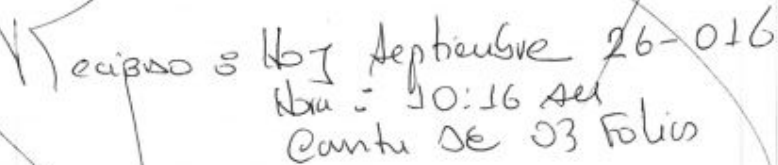 Recibido : Hoy Septiembre 26-016
Hora : 10:16 AM
Consta DE 03 Folios